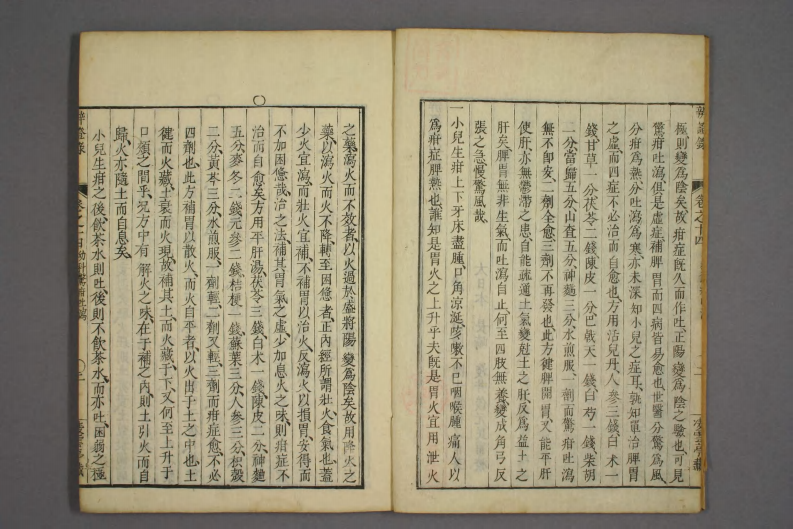 極則變爲陰矣故疳症既久而作吐正陽變爲陰之驗也可見
驚疳吐瀉但是虛症補脾胃而四病皆易愈也世醫分驚爲風
分疳爲熱分吐瀉爲寒亦未深知小兒之症耳孰知單治脾胃
之虛而四症不必治而自愈也方用活兒丹人參三錢白术一
錢甘草一分茯苓二錢陳皮一分巴戟天一錢白芍一錢柴胡
二分當歸五分山查五分神麯三分水煎服一劑而驚疳吐瀉
無不即安二劑全愈三劑不再發也此方健脾開胃又能平肝
使肝亦無鬱滯之患自能疏通土氣變尅土之肝反爲益土之
肝矣脾胃無非生氣而吐瀉自止何至四肢無養變成角弓反
張之急慢驚風哉
一小兒生疳上下牙床盡腫口角涎流咳嗽不已咽喉腫痛人以
爲疳症脾熱也誰知是胃火之上升乎夫既是胃火宜用泄火
之藥瀉火而不效者以火過於盛將陽變爲陰矣故用降火之
藥以瀉火而火不降轉至困憊者正內經所謂壯火食氣也蓋
少火宜瀉而壯火宜補不補胃以治火反瀉火以損胃安得而
不加困憊哉治之法補其胃氣之虛少加息火之味則疳症不
治而自愈矣方用平肝湯茯苓三錢白术一錢陳皮二分神麯
五分麥冬二錢元參二錢桔梗一錢蘇葉三分人參三分枳殼
二分黃芩三分水煎服一劑輕二劑又輕三劑而疳症愈不必
四劑也此方補胃以散火而火自平者以火出于土之中也土
健而火藏土衰而火現故補其土而火藏于下又何至上升于
口頰之間乎況方中有解火之味在于補之內則土引火而自
歸火亦隨土而自息矣
小兒生疳之後飲茶水則吐後則不飲茶水而亦吐困弱之極